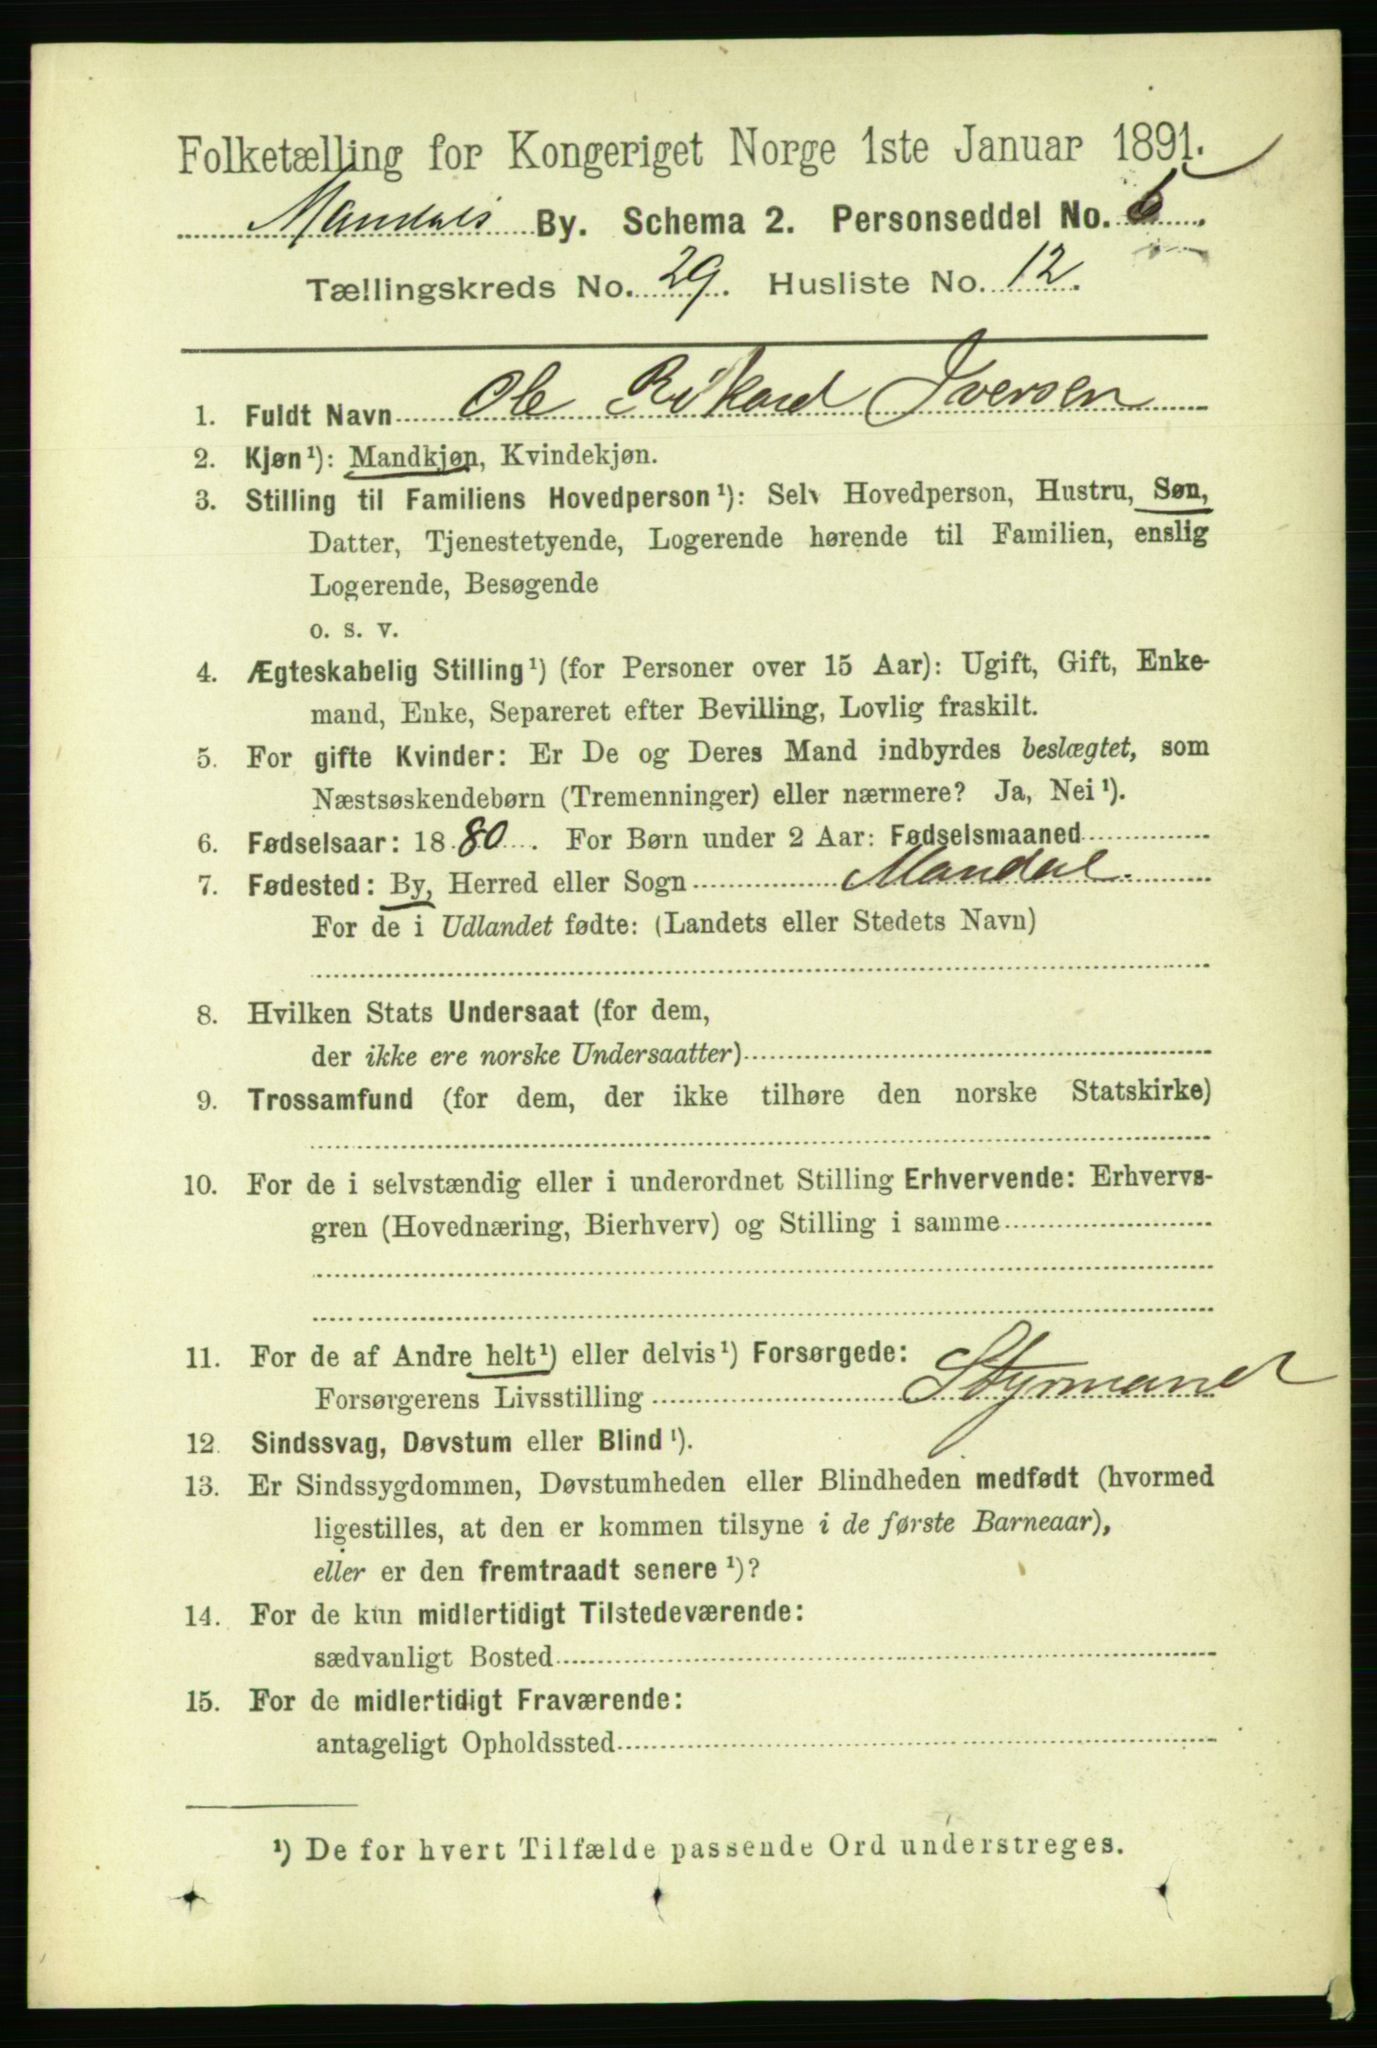 Folketælling for Kongeriget Norge 1ste Januar 1891.
Mandals By. Schema 2. Personseddel No.
Tællingskreds No. 29. Husliste No. 12.
1. Fuldt Navn Ole Rikard Iversen
2. Kjøn¹): Mandkjøn, Kvindekjøn.
3. Stilling til Familiens Hovedperson¹): Selv Hovedperson, Hustru, Søn,
Datter, Tjenestetyende, Logerende hørende til Familien, enslig
Logerende, Besøgende
o. s. v.
4. Ægteskabelig Stilling¹) (for Personer over 15 Aar): Ugift, Gift, Enke-
mand, Enke, Separeret efter Bevilling, Lovlig fraskilt.
5. For gifte Kvinder: Er De og Deres Mand indbyrdes beslægtet, som
Næstsøskendebørn (Tremenninger) eller nærmere? Ja, Nei¹).
6. Fødselsaar: 1880. For Børn under 2 Aar: Fødselsmaaned
7. Fødested: By, Herred eller Sogn Mandal.
For de i Udlandet fødte: (Landets eller Stedets Navn)
8. Hvilken Stats Undersaat (for dem,
der ikke ere norske Undersaatter)
9. Trossamfund (for dem, der ikke tilhøre den norske Statskirke)
10. For de i selvstændig eller i underordnet Stilling Erhvervende: Erhvervs-
gren (Hovednæring, Bierhverv) og Stilling i samme
11. For de af Andre helt¹) eller delvis¹) Forsørgede:
Forsørgerens Livsstilling Styrmand
12. Sindssvag, Døvstum eller Blind¹).
13. Er Sindssygdommen, Døvstumheden eller Blindheden medfødt (hvormed
ligestilles, at den er kommen tilsyne i de første Barneaar),
eller er den fremtraadt senere¹)?
14. For de kun midlertidigt Tilstedeværende:
sædvanligt Bosted
15. For de midlertidigt Fraværende:
antageligt Opholdssted
¹) De for hvert Tilfælde passende Ord understreges.